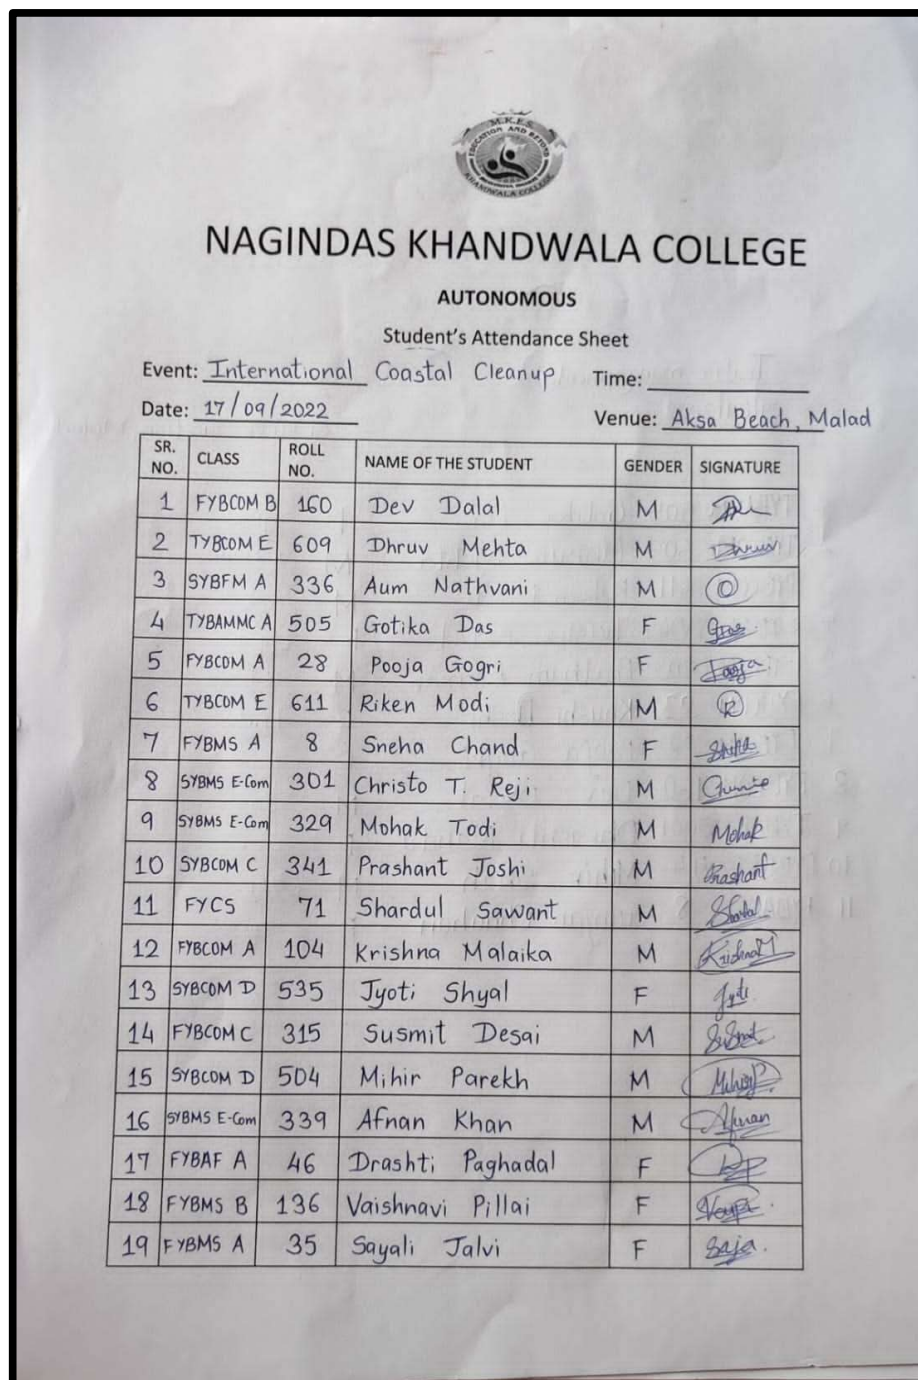 M.K.E.S.
EDUCATION AND BEYOND
KHANDWALA COLLEGE
NAGINDAS KHANDWALA COLLEGE
AUTONOMOUS
Student's Attendance Sheet
Event: International Coastal Cleanup Time:
Date: 17/09/2022 Venue: Aksa Beach, Malad
SR. NO. CLASS ROLL NO. NAME OF THE STUDENT GENDER SIGNATURE
1 FYBCOM B 160 Dev Dalal M
2 TYBCOM E 609 Dhruv Mehta M Dhruv
3 SYBFM A 336 Aum Nathvani M
4 TYBAMMC A 505 Gotika Das F
5 FYBCOM A 28 Pooja Gogri F Pooja
6 TYBCOM E 611 Riken Modi M R
7 FYBMS A 8 Sneha Chand F
8 SYBMS E-Com 301 Christo T. Reji M
9 SYBMS E-Com 329 Mohak Todi M Mohak
10 SYBCOM C 341 Prashant Joshi M Prashant
11 FYCS 71 Shardul Sawant M
12 FYBCOM A 104 Krishna Malaika M KrishnaM
13 SYBCOM D 535 Jyoti Shyal F Jyoti
14 FYBCOM C 315 Susmit Desai M Susmit
15 SYBCOM D 504 Mihir Parekh M
16 SYBMS E-Com 339 Afnan Khan M Afnan
17 FYBAF A 46 Drashti Paghadal F
18 FYBMS B 136 Vaishnavi Pillai F
19 FYBMS A 35 Sayali Jalvi F